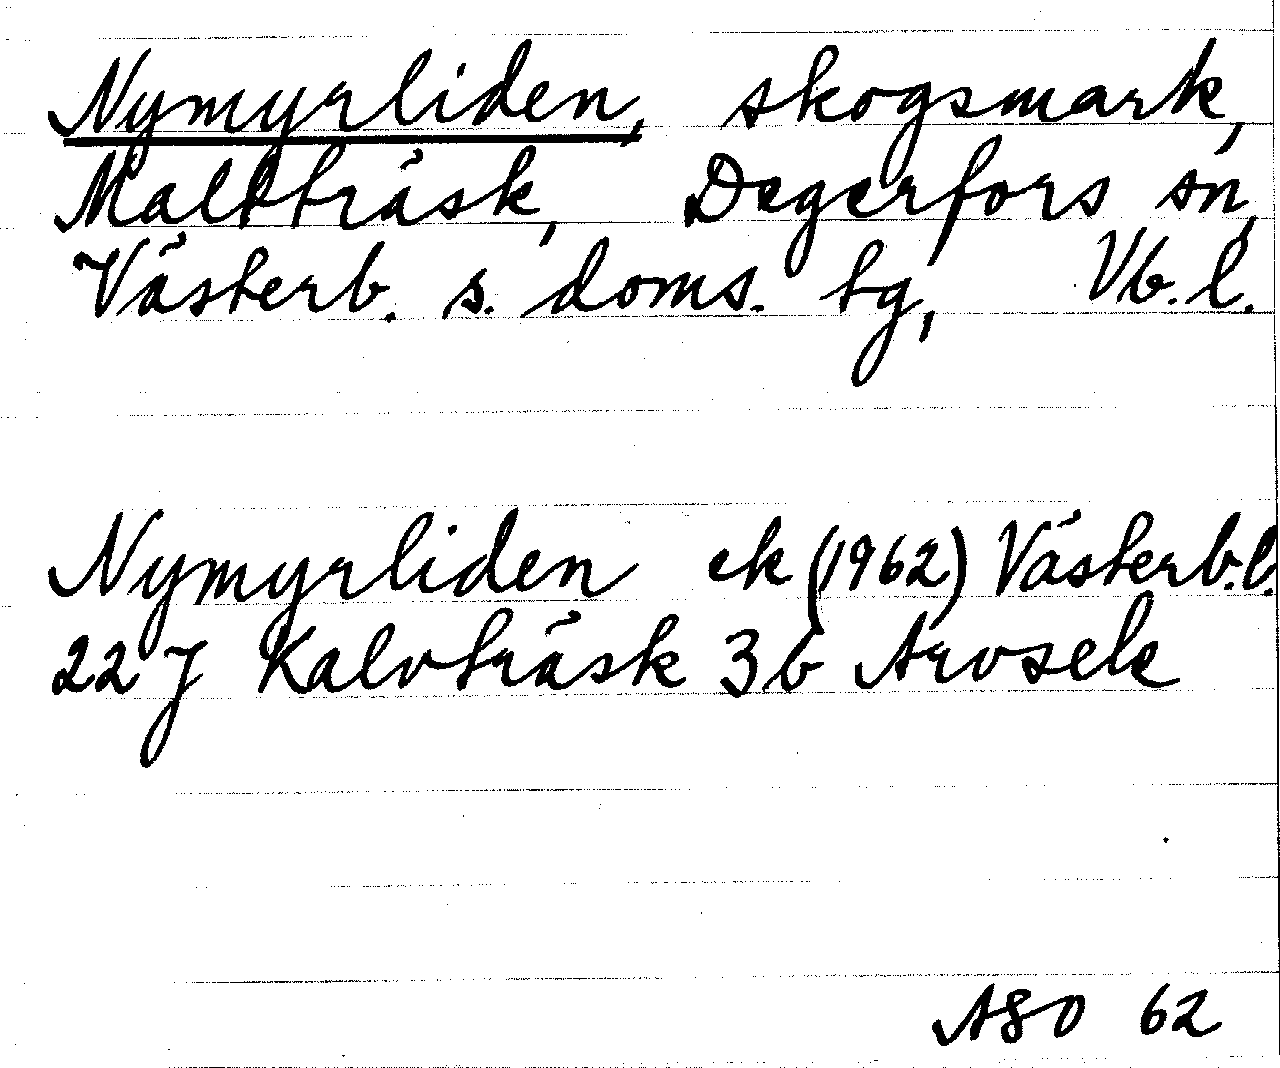 Nymyrliden, skogsmark,
Maltträsk, Degerfors sn,
Västerb. s. doms. tg, Vb. l.
Nymyrliden ek (1962) Västerb. l.
22 J Kalvträsk 3 b Arvsele
ASO 62